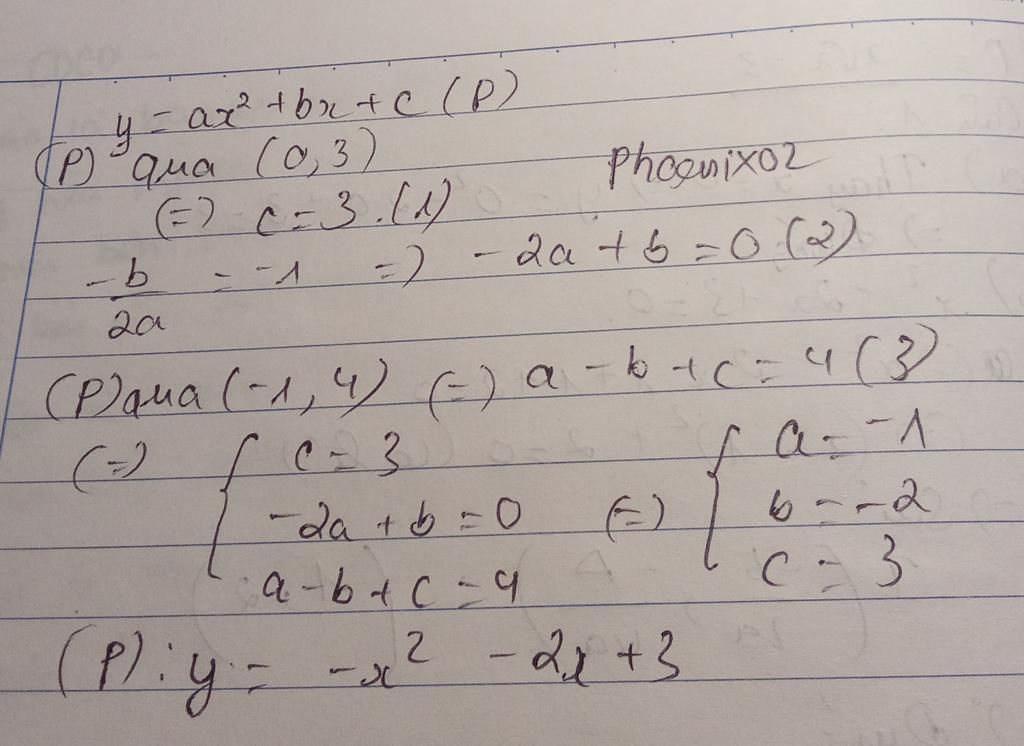 y = ax² + bx + c (P)
(P) qua (0,3)
Phoenix02
(=) c = 3. (1)
-b/2a = -1 =) -2a + b = 0 (2)
(P) qua (-1, 4) (=) a - b + c = 4 (3)
(=) { c = 3 (=) { a = -1
-2a + b = 0 b = -2
a - b + c = 4 c = 3
(P): y = -x² - 2x + 3